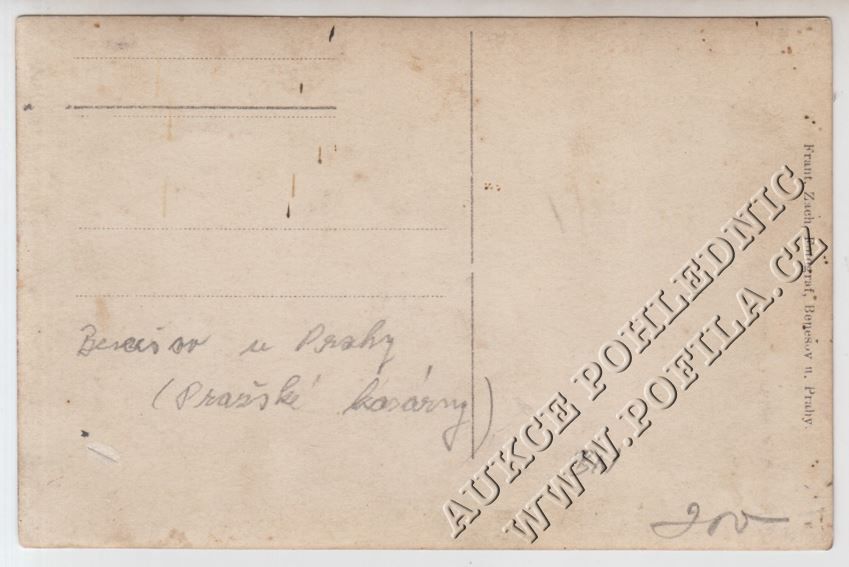 Benešov u Prahy
(Pražské kasárny)
Frant. Zach, Fotograf, Benešov u. Prahy.
AUKCE POHLEDNIC
WWW.POFILA.CZ